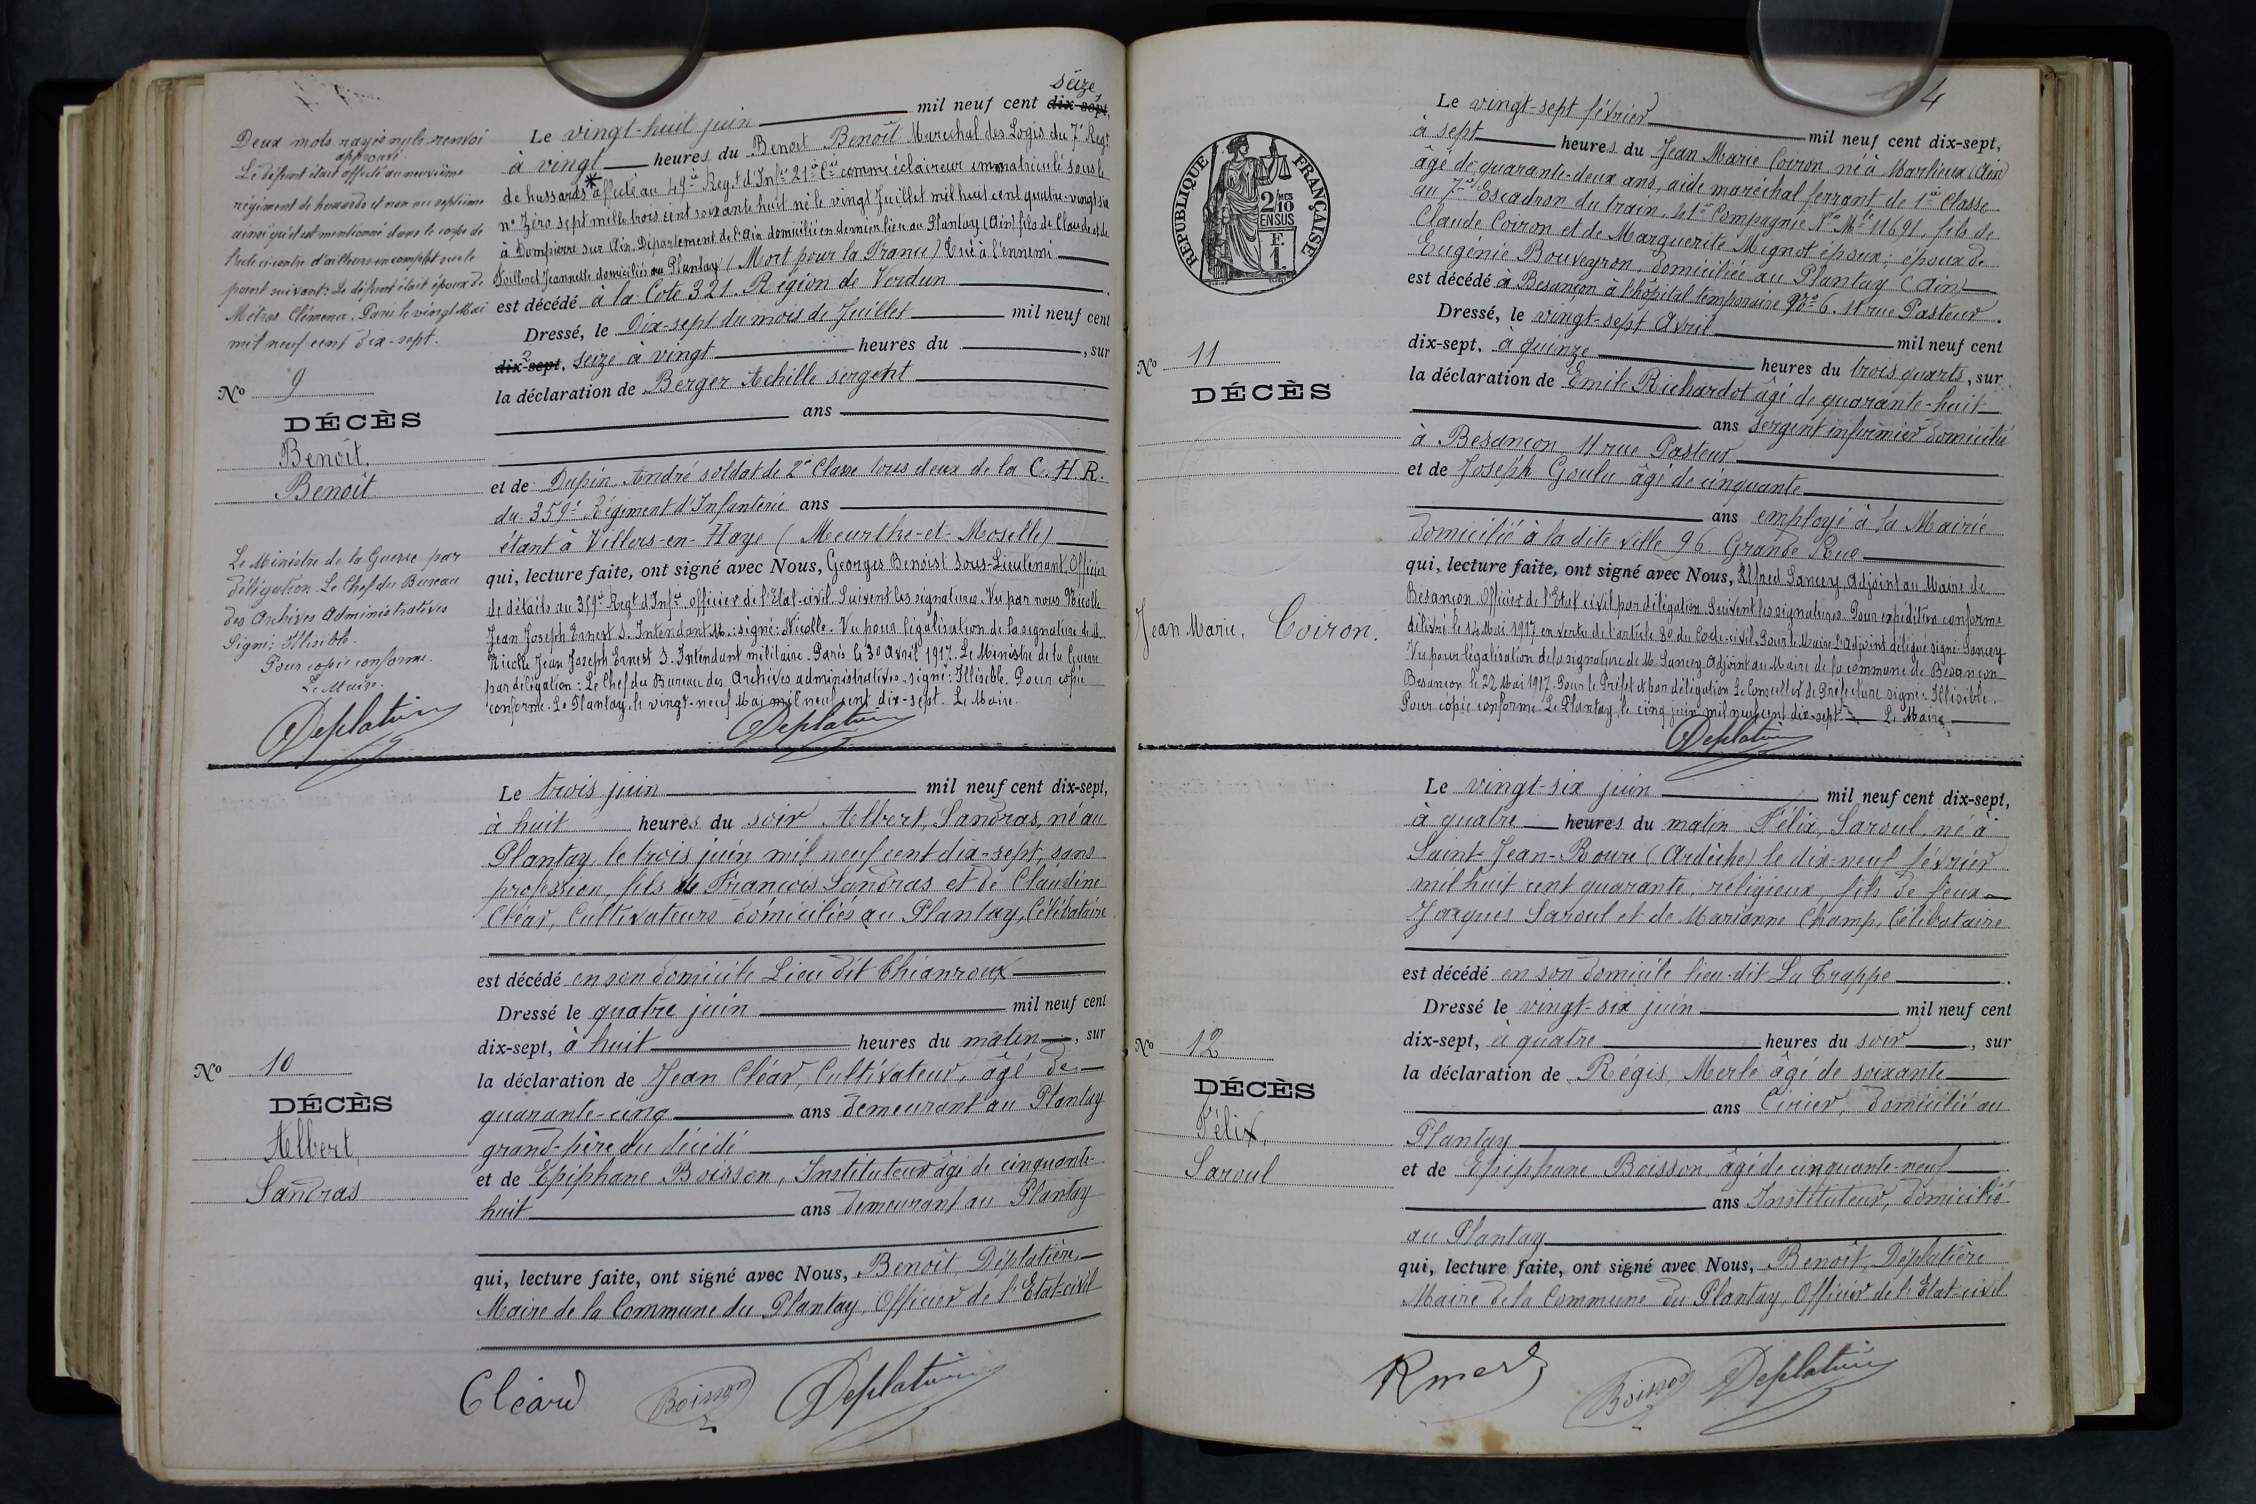 Deux mots rayés nuls renvoi
approuvé
Le défunt était affecté au neuvième
régiment de hussards et non au septième
ainsi qu'il est mentionné dans le corps de
l'acte ci contre d'ailleurs incomplet sur le
point suivant: Le défunt était époux de
Métras Clémence. Paris le vingt Mai
mil neuf cent dix-sept.
No 9
DÉCÈS
Benoît,
Benoît
Le Ministre de la Guerre par
délégation Le Chef du Bureau
des Archives Administratives
Signé: Illisible.
Pour copie conforme.
Le Maire.
Deplatière
seize,
Le vingt-huit juin mil neuf cent dix-sept,
à vingt heures du Benoit Benoît Maréchal des Logis du 7e Régt
de hussards * affecté au 49e Regt d'Infie 21e Cie comme éclaireur immatriculé sous le
no Zéro sept mille trois cent soixante huit né le vingt Juillet mil huit cent quatre-vingt six
à Dompierre sur Ain, Département de l'Ain domicilié en dernier lieu au Plantay (Ain) fils de Claude et de
Jeannette domiciliés au Plantay (Mort pour la France) Tué à l'ennemi
est décédé à la Cote 321. Région de Verdun.
Dressé, le Dix-sept du mois de Juillet mil neuf cent
dix-sept, seize à vingt heures du , sur
la déclaration de Berger Achille sergent
ans
et de Dupin André soldat de 2e Classe tous deux de la C.H.R.
du 359e Régiment d'Infanterie ans
étant à Villers-en-Haye (Meurthe-et-Moselle)
qui, lecture faite, ont signé avec Nous, Georges Benoist Sous-Lieutenant, Officier
de détails au 359e Regt d'Infie officier de l'Etat-civil. Suivent les signatures. Vu par nous Nicolle
Jean Joseph Ernest S. Intendant M.: signé: Nicolle. Vu pour légalisation de la signature de M.
Nicolle Jean Joseph Ernest S. Intendant militaire. Paris le 30 Avril 1917. Le Ministre de la Guerre
par délégation: Le Chef du Bureau des Archives administratives. signé: Illisible. Pour copie
conforme. Le Plantay, le vingt-neuf Mai mil neuf cent dix-sept. Le Maire.
Deplatière
No 10
DÉCÈS
Albert,
Sandras
Le trois juin mil neuf cent dix-sept,
à huit heures du soir Albert, Sandras, né au
Plantay, le trois juin mil neuf cent dix-sept, sans
profession, fils de François Sandras et de Claudine
Cléar, Cultivateurs domiciliés au Plantay, Célibataire
est décédé en son domicile Lieu dit Chianroux
Dressé le quatre juin mil neuf cent
dix-sept, à huit heures du matin, sur
la déclaration de Jean Cléar, Cultivateur, âgé de
quarante-cinq ans demeurant au Plantay
grand-père du décédé
et de Epiphane Boisson, Instituteur âgé de cinquante-
huit ans demeurant au Plantay
qui, lecture faite, ont signé avec Nous, Benoît, Déplatière,
Maire de la Commune du Plantay, Officier de l'Etat-civil
Cléard Boisson Deplatière
4
RÉPUBLIQUE FRANÇAISE
2/10 MES EN SUS
F. 1.
No 11
DÉCÈS
Jean Marie, Coiron.
Le vingt-sept février mil neuf cent dix-sept,
à sept heures du Jean Marie Coiron, né à Marlieux (Ain)
âgé de quarante-deux ans, aide maréchal ferrant de 1ère Classe
au 7e Escadron du train, 41e Compagnie, No Mle 11691, fils de
Claude Coiron et de Marguerite Mignot époux; époux de
Eugénie Bouveyron, domiciliée au Plantay (Ain)
est décédé à Besançon à l'hôpital temporaire No 6. 11 rue Pasteur.
Dressé, le vingt-sept Avril mil neuf cent
dix-sept, à quinze heures du trois quarts, sur
la déclaration de Emile Richardot âgé de quarante-huit
ans sergent infirmier domicilié
à Besançon 11 rue Pasteur
et de Joseph Goulu âgé de cinquante
ans employé à la Mairie
domicilié à la dite ville 96 Grande Rue
qui, lecture faite, ont signé avec Nous, Alfred Sancey, Adjoint au Maire de
Besançon. Officier de l'Etat civil par délégation. Suivent les signatures. Pour expédition conforme
délivré le 14 Mai 1917 en vertu de l'article 80 du Code-civil. Pour le Maire l'Adjoint délégué signé: Sancey
Vu pour légalisation de la signature de M. Sancey, Adjoint au Maire de la commune de Besançon
Besançon le 22 Mai 1917. Pour le Préfet et par délégation Le Conseiller de Préfecture signé: Illisible.
Pour copie conforme Le Plantay, le cinq juin mil neuf cent dix-sept. Le Maire,
Deplatière
No 12
DÉCÈS
Félix,
Saroul
Le vingt-six juin mil neuf cent dix-sept,
à quatre heures du matin Félix, Saroul, né à
Saint-Jean-Roure (Ardèche) le dix-neuf février
mil huit cent quarante, religieux, fils de feux
Jacques Saroul et de Marianne Champ, Célibataire
est décédé en son domicile lieu-dit La Trappe.
Dressé le vingt-six juin mil neuf cent
dix-sept, à quatre heures du soir, sur
la déclaration de Régis, Merle âgé de soixante
ans Cirier, domicilié au
Plantay
et de Epiphane Boisson, âgé de cinquante-neuf
ans Instituteur, domicilié
au Plantay
qui, lecture faite, ont signé avec Nous, Benoît, Déplatière
Maire de la Commune du Plantay, Officier de l'Etat-civil
R merle Boisson Deplatière